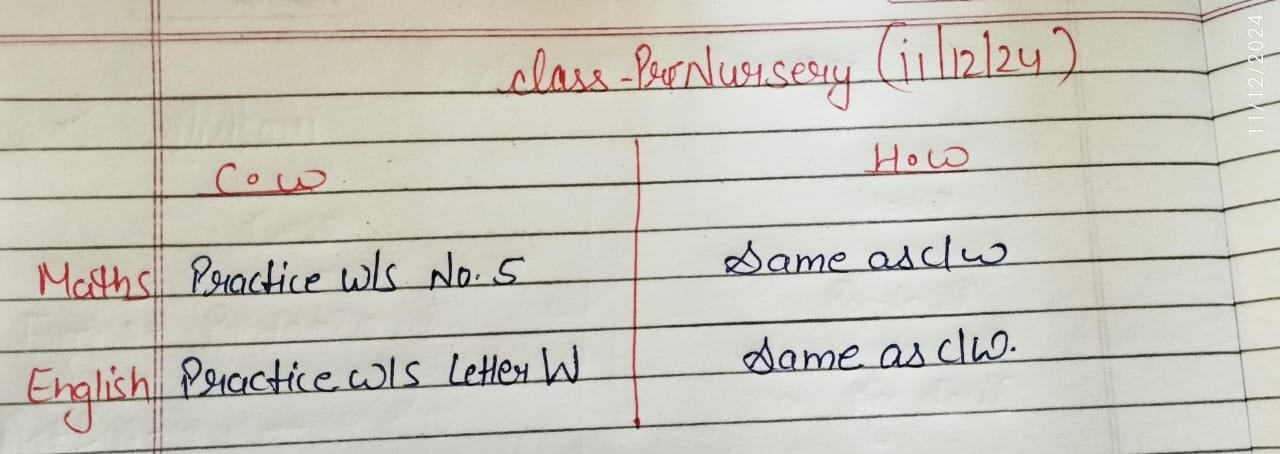 class-Pre Nursery (11/12/24)
C.W H.W
Maths Practice w/s No. 5 Same as c/w
English Practice w/s Letter W Same as c/w.
11/12/2024